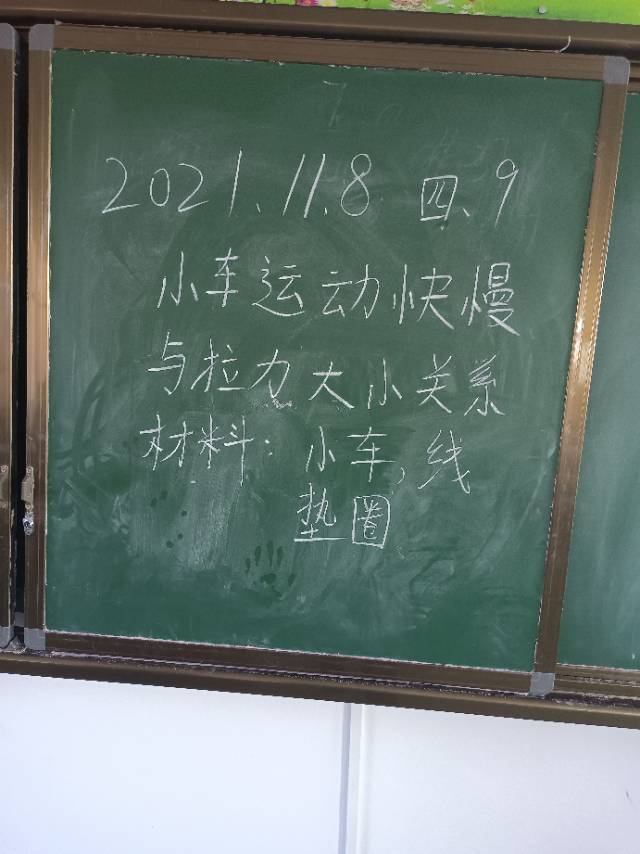 2021.11.8 四、9
小车运动快慢
与拉力大小关系
材料：小车，线
垫圈